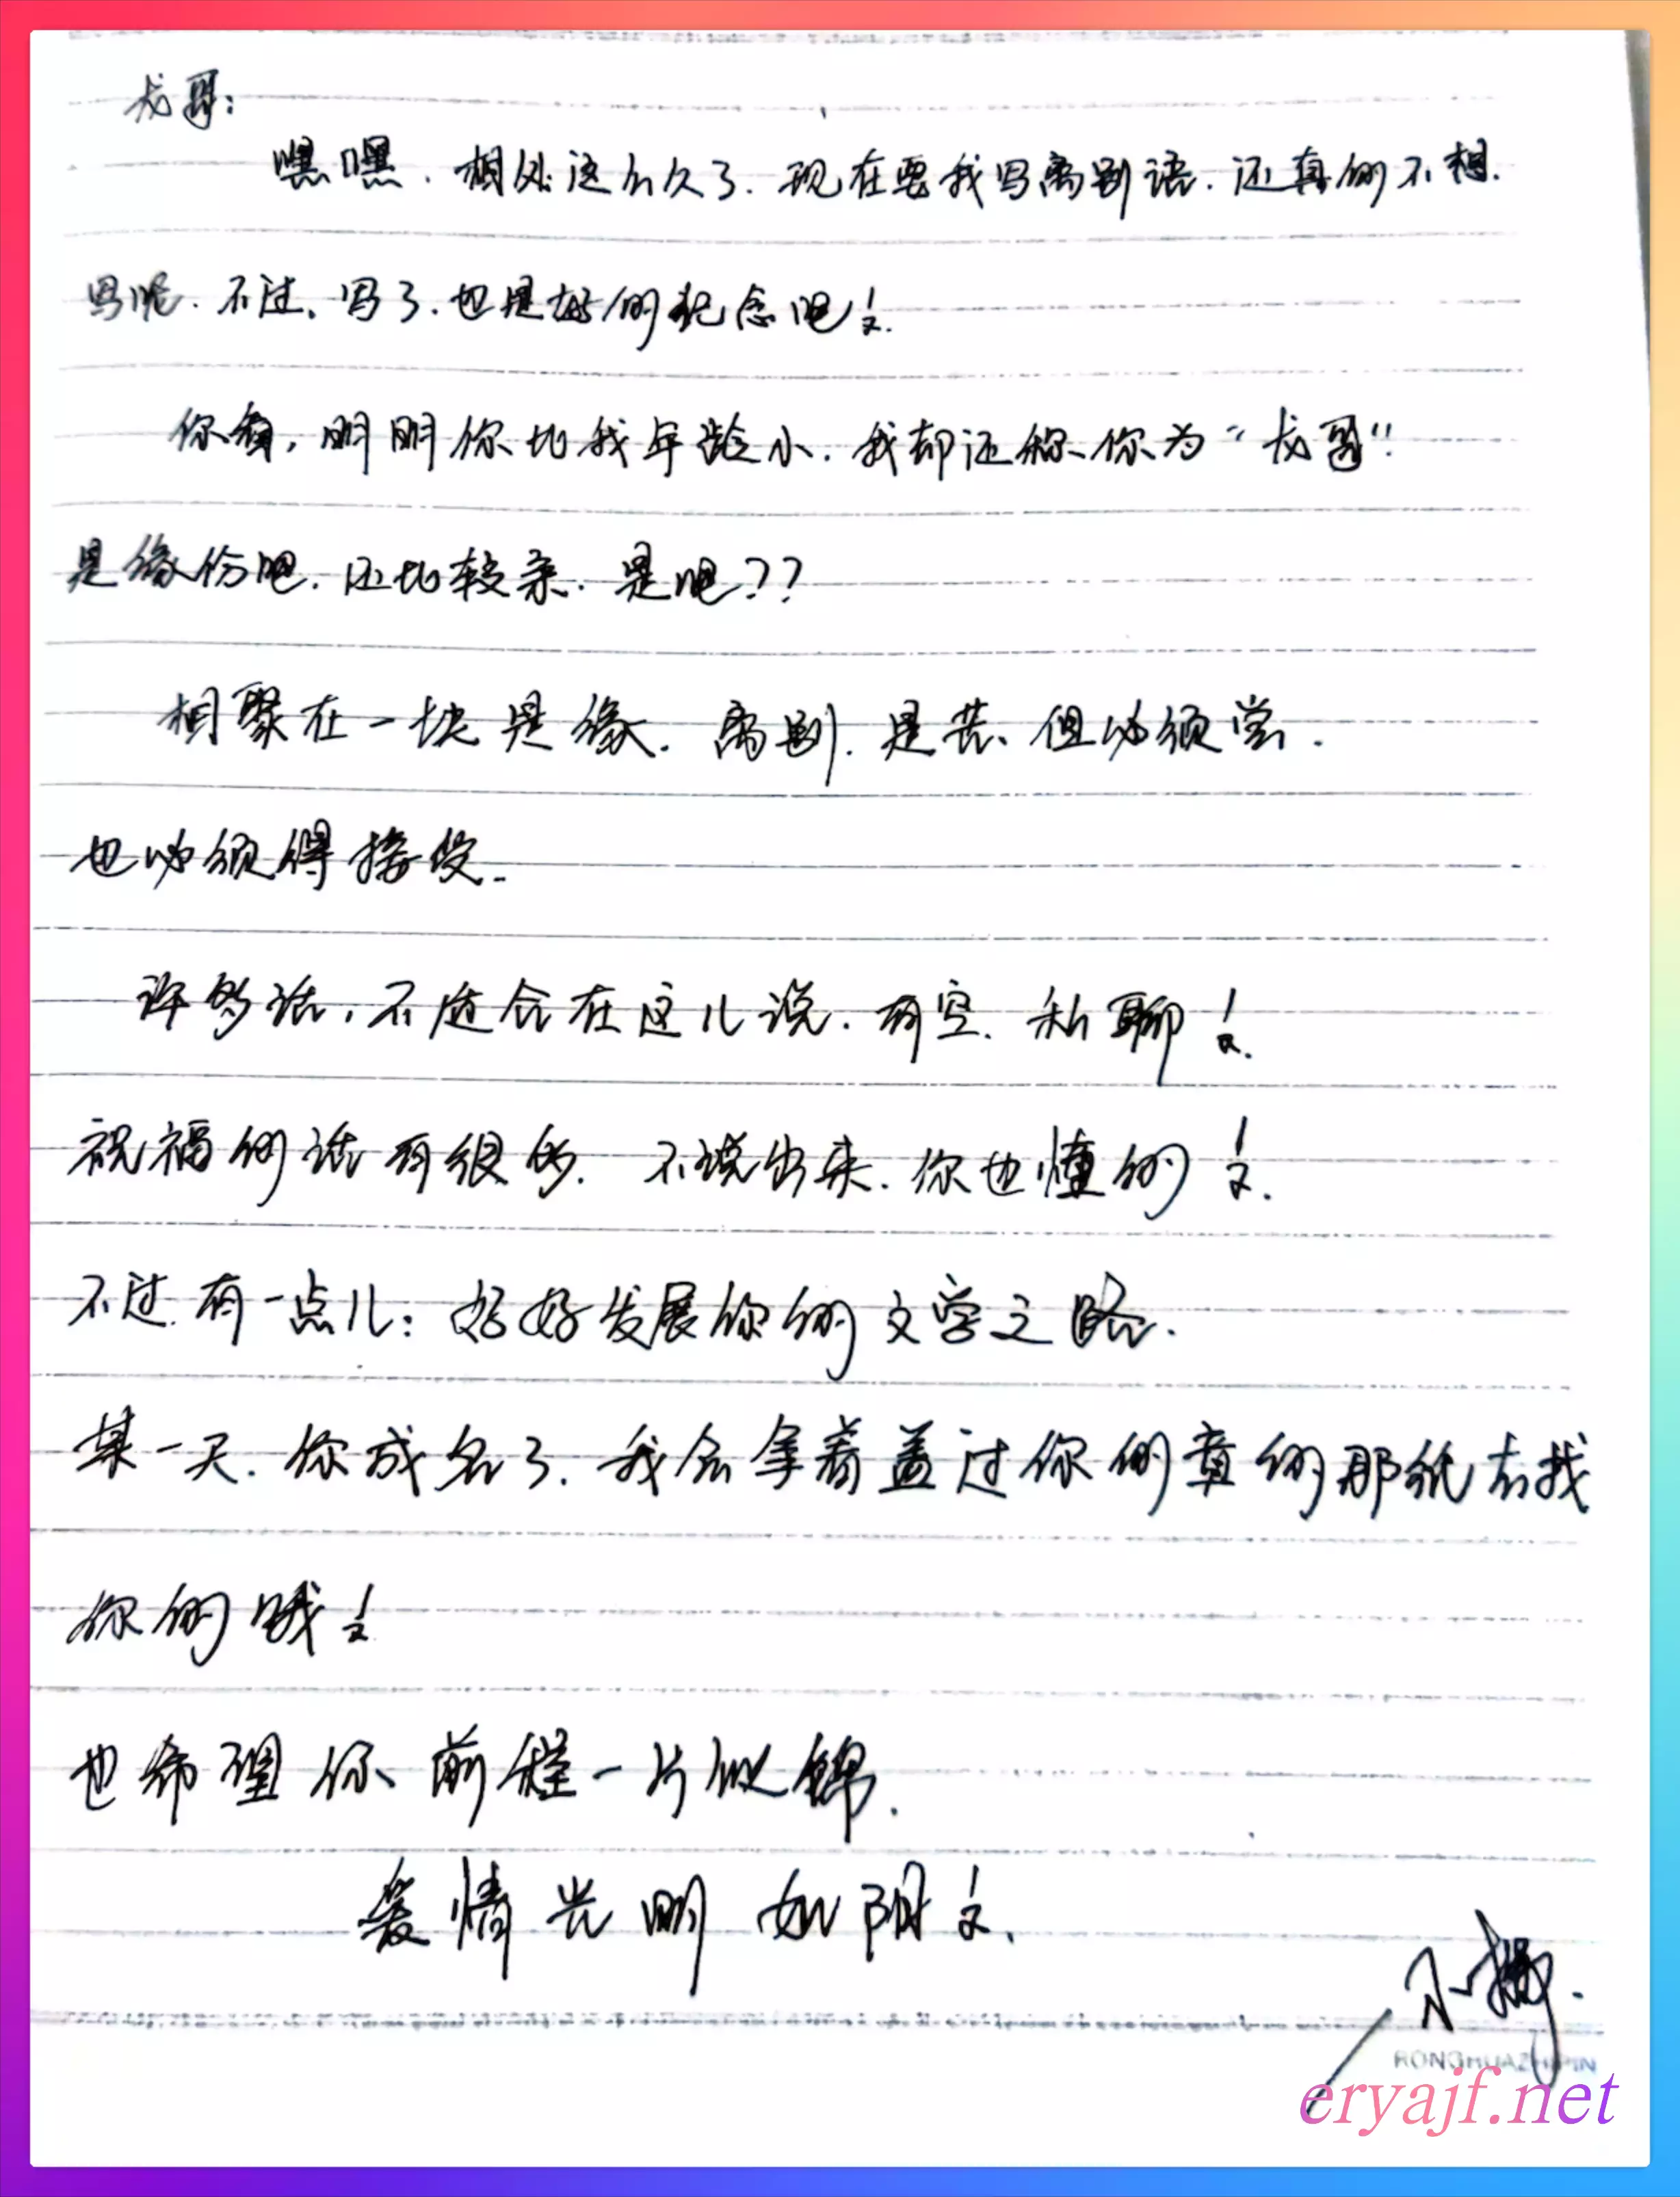 龙哥：
嘿嘿，相处这么久了，现在要我写离别语，还真的不想
写呢，不过，写了，也是好的纪念吧！
你看，明明你比我年龄小，我却还称你为“龙哥”
是缘份吧，还比较亲，是吧？？
相聚在一块是缘，离别，是苦，但必须尝，
也必须得接受。
许多话，不适合在这儿说，有空，私聊！
祝福的话有很多，不说出来，你也懂的！
不过，有一点儿：好好发展你的文学之路，
某一天，你成名了，我会拿着盖过你的章的那纸去找
你的哦！
也希望你前程一片似锦，
爱情光明如阴！
小
RONGHUAZHIPIN
eryajf.net